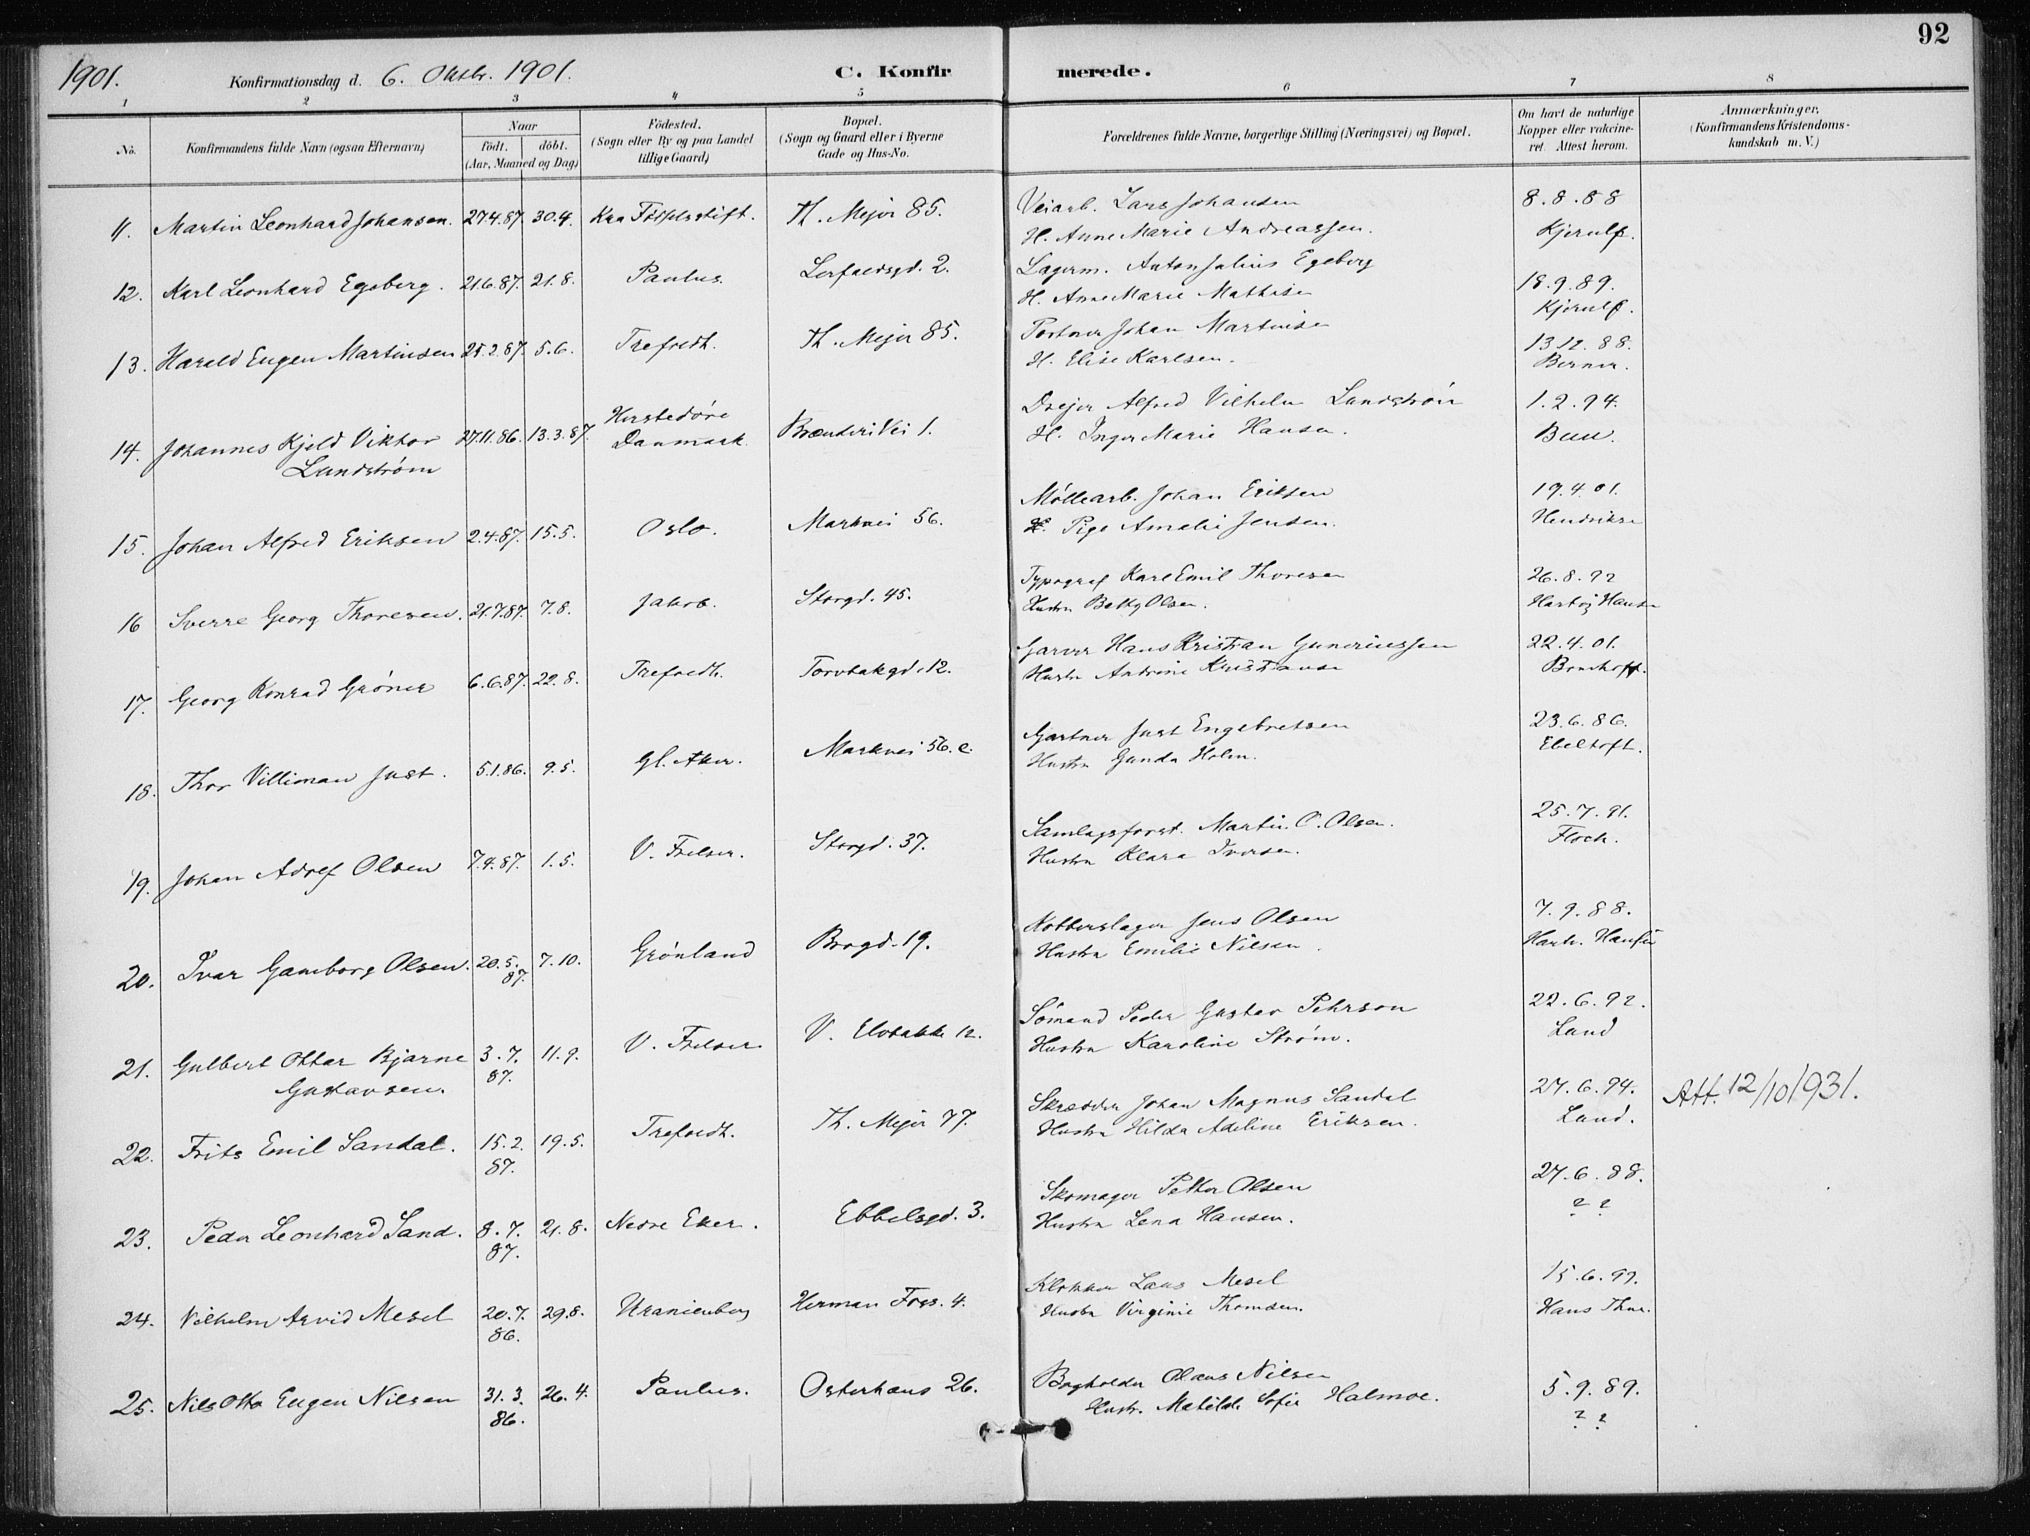 92
1901. Konfirmationsdag d. 6. Oktbr. 1901. C. Konfirmerede.
1 2 3 4 5 6 7 8
No. Konfirmandens fulde Navn (ogsaa Efternavn) Naar födt. döbt. (Aar, Maaned og Dag) Födested. (Sogn eller By og paa Landet tillige Gaard) Bopæl. (Sogn og Gaard eller i Byerne Gade og Hus-No. Forældrenes fulde Navne, borgerlige Stilling (Næringsvei) og Bopæl. Om havt de naturlige Kopper eller vakcineret. Attest herom. Anmærkninger. (Konfirmandens Kristendomskundskab m. V.)
11. Martin Leonhard Johansen. 27.4.87. 30.4. Kra Fødselsstift. Th. Mejer 85. Veiarb. Lars Johansen 8.8.88
H. Anne Marie Andreassen. Kjerulf.
12. Karl Leonhard Egeberg. 21.6.87. 21.8. Paulus. Lerfaldsgd. 2. Lagerm. Anton Julius Egeberg 18.9.89.
H. Anne Marie Mathisen Kjerulf.
13. Harald Eugen Martinsen 25.2.87. 5.6. Trefoldh. Th. Mejer 85. Portner Johan Martinsen 13.12.88.
H. Elise Karlsen. Berner.
14. Johannes Kjeld Viktor Lundstrøm 27.11.86. 13.3.87. Danmark Brænderi Vei 1. Drejer Alfred Vilhelm Lundstrøm 1.2.94.
H. Inger Marie Hansen.
15. Johan Alfred Eriksen 2.4.87. 15.5. Oslo. Markvei 56. Møllearb. Johan Eriksen 19.4.01.
Pige Amalie Jensen. Hendriksen
16 Sverre Georg Thoresen. 21.7.87. 7.8. Jakob. Storgd. 45. Typograf Karl Emil Thoresen 26.8.92
Hustru Betty Olsen. Hartvig Hansen
17. Georg Konrad Grøner 6.6.87. 22.8. Trefoldh. Torvbakgd. 12. Garver Hans Kristian Guneriussen 22.4.01.
Hustru Antoni Kristiansen
18. Thor Villiman Just. 5.1.86. 9.5. Gl. Aker. Markvei 56.c. Gartner Just Engebretsen 23.6.86.
Hustru Gunda Holm. Ebeltoft.
19. Johan Adolf Olsen 7.4.87. 1.5. V. Frelser. Storgd. 37. Samlagsforst. Martin O. Olsen. 25.7.91.
Hustru Klara Iversen. Floch.
20. Ivar Gamborg Olsen. 20.5.87. 7.10. Grønland Brogd. 19. Kobberslager Jens Olsen 7.9.88.
Hustru Emilie Nilsen. Hartv. Hansen
21. Gulbert Ottar Bjarne Gustavsen. 3.7.87. 11.9. V. Frelser V. Elvbakke 12. Sømand Peder Gustav Pehrson 22.6.92.
Hustru Karoline Strøm. Land
22. Frits Emil Sandal. 15.2.87. 19.5. Trefoldh. Th. Mejer 77. Skrædder Johan Magnus Sandal 27.6.94. Att. 12/10 1931.
Hustru Hilda Adeline Eriksen. Land.
23. Peder Leonhard Sand. 8.7.87. 21.8. Nedre Eker. Ebbelsgd. 3. Skomager Petter Olsen 27.6.88.
Hustru Lena Hansen. ? ?
24. Vilhelm Arvid Mesel 20.7.86. 29.8. Uranienborg Herman Foss. 4. Klokker Laus Mesel 15.6.99.
Hustru Virginie Thomsen. Hans Thur.
25. Nils Otto Eugen Nilsen 31.3.86. 26.4. Paulus. Osterhaus 26. Bogholder Olaus Nilsen 5.9.89.
Hustr. Matilde Sofie Halmoe. ? ?